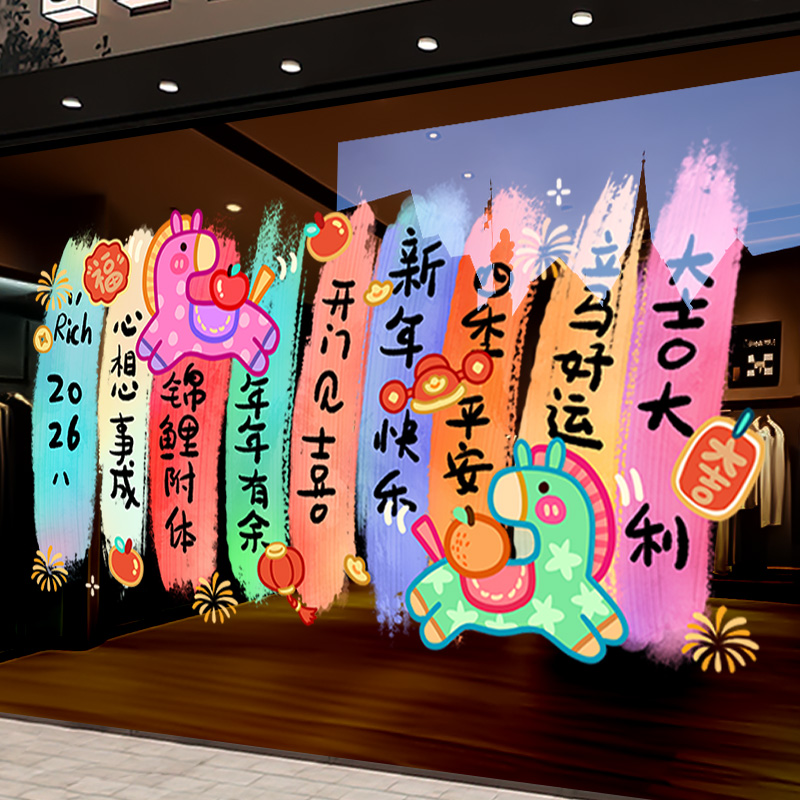 Rich 2026
福
心想事成
锦鲤附体
年年有余
开门见喜
新年快乐
四季平安
立马好运
大吉大利
大吉